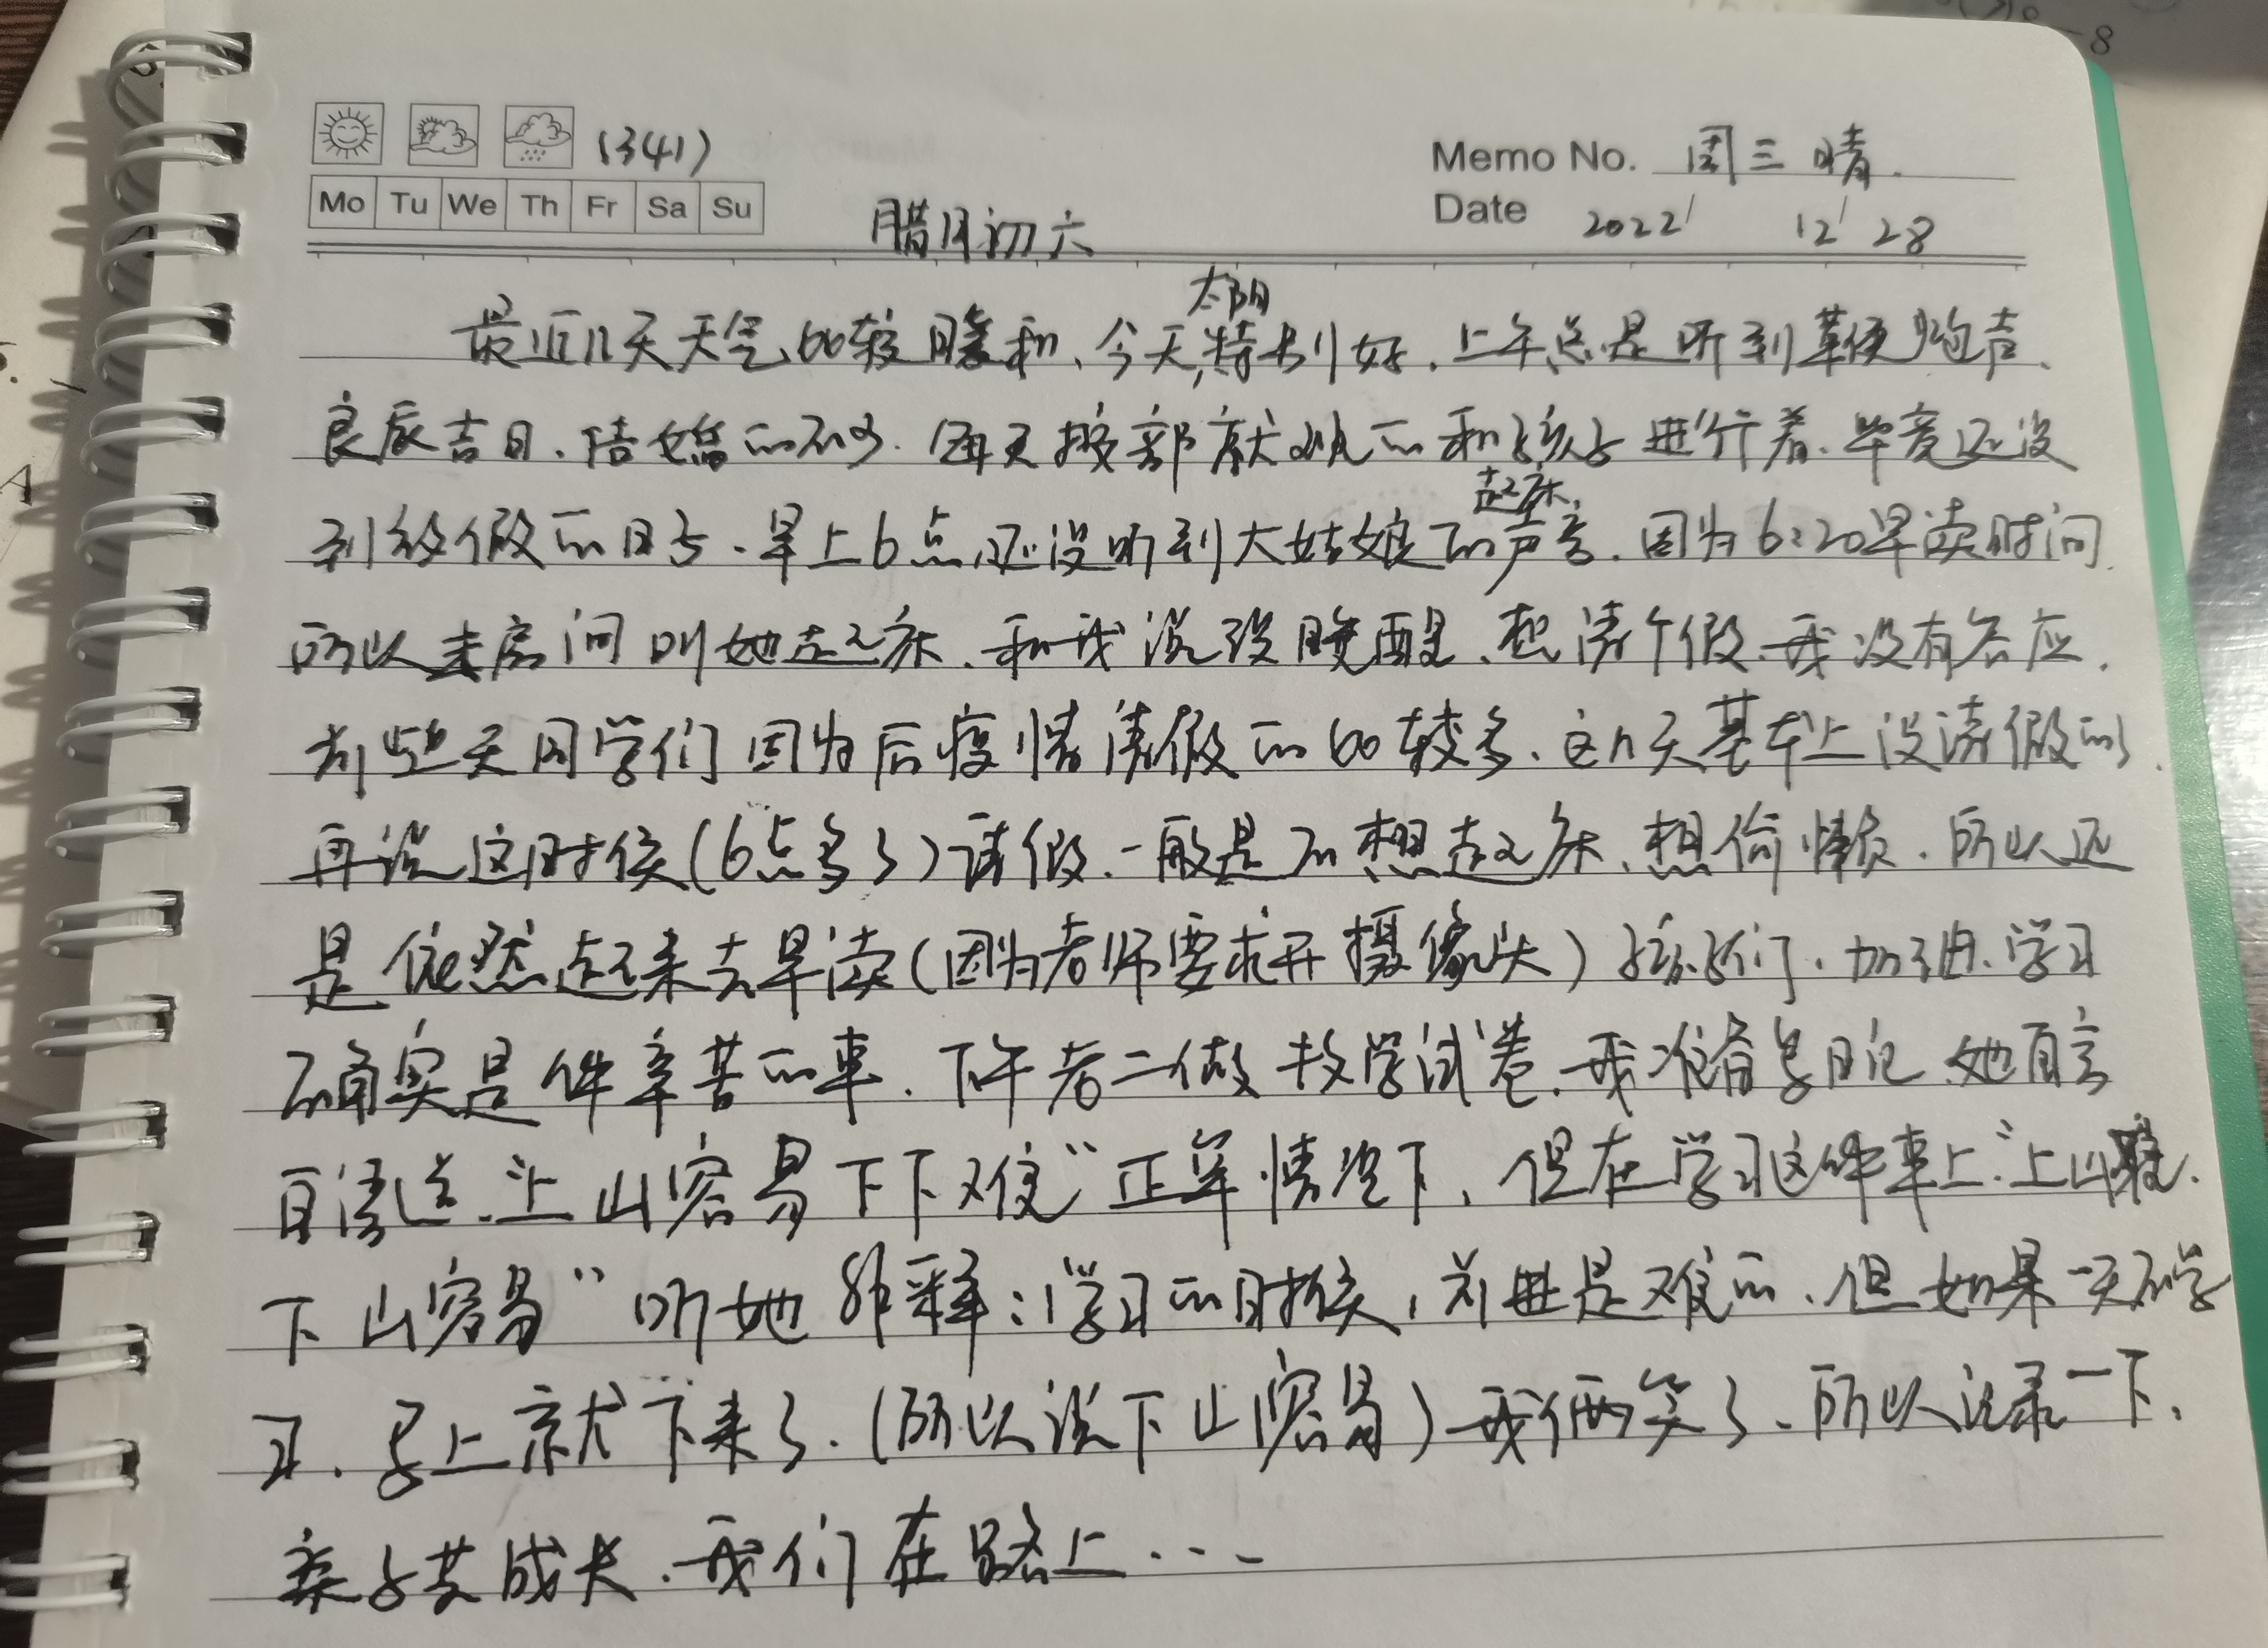 (341)
Memo No. 周三 晴.
Mo Tu We Th Fr Sa Su
Date 2022/ 12/ 28
腊月初六
最近几天天气比较暖和、今天太阳特别好.上午总是听到鞭炮声、
良辰吉日.结婚的不少.每天按部就班的和孩子进行着.毕竟还没
到放假的日子.早上6点还没听到大姑娘起床的声音.因为6:20早读时间.
所以来房间叫她起床、和我说没睡醒、想请个假.我没有答应.
前些天同学们因为后疫情请假的比较多、这几天基本上没请假的.
再说这时候(6点多了)请假.一般是不想起床、想偷懒.所以还
是依然起来去早读(因为老师要求开摄像头)孩子们.加油.学习
确实是件辛苦的事.下午老二做数学试卷.我准备写日记.她自言
自语道.“上山容易下下难”正常情况下.但在学习这件事上“上山难.
下山容易”听她解释:学习的时候,前进是难的.但如果一天不学
习.马上就下来了.(所以说下山容易)我俩笑了、所以记录一下、
亲子共成长.我们在路上...
8
A